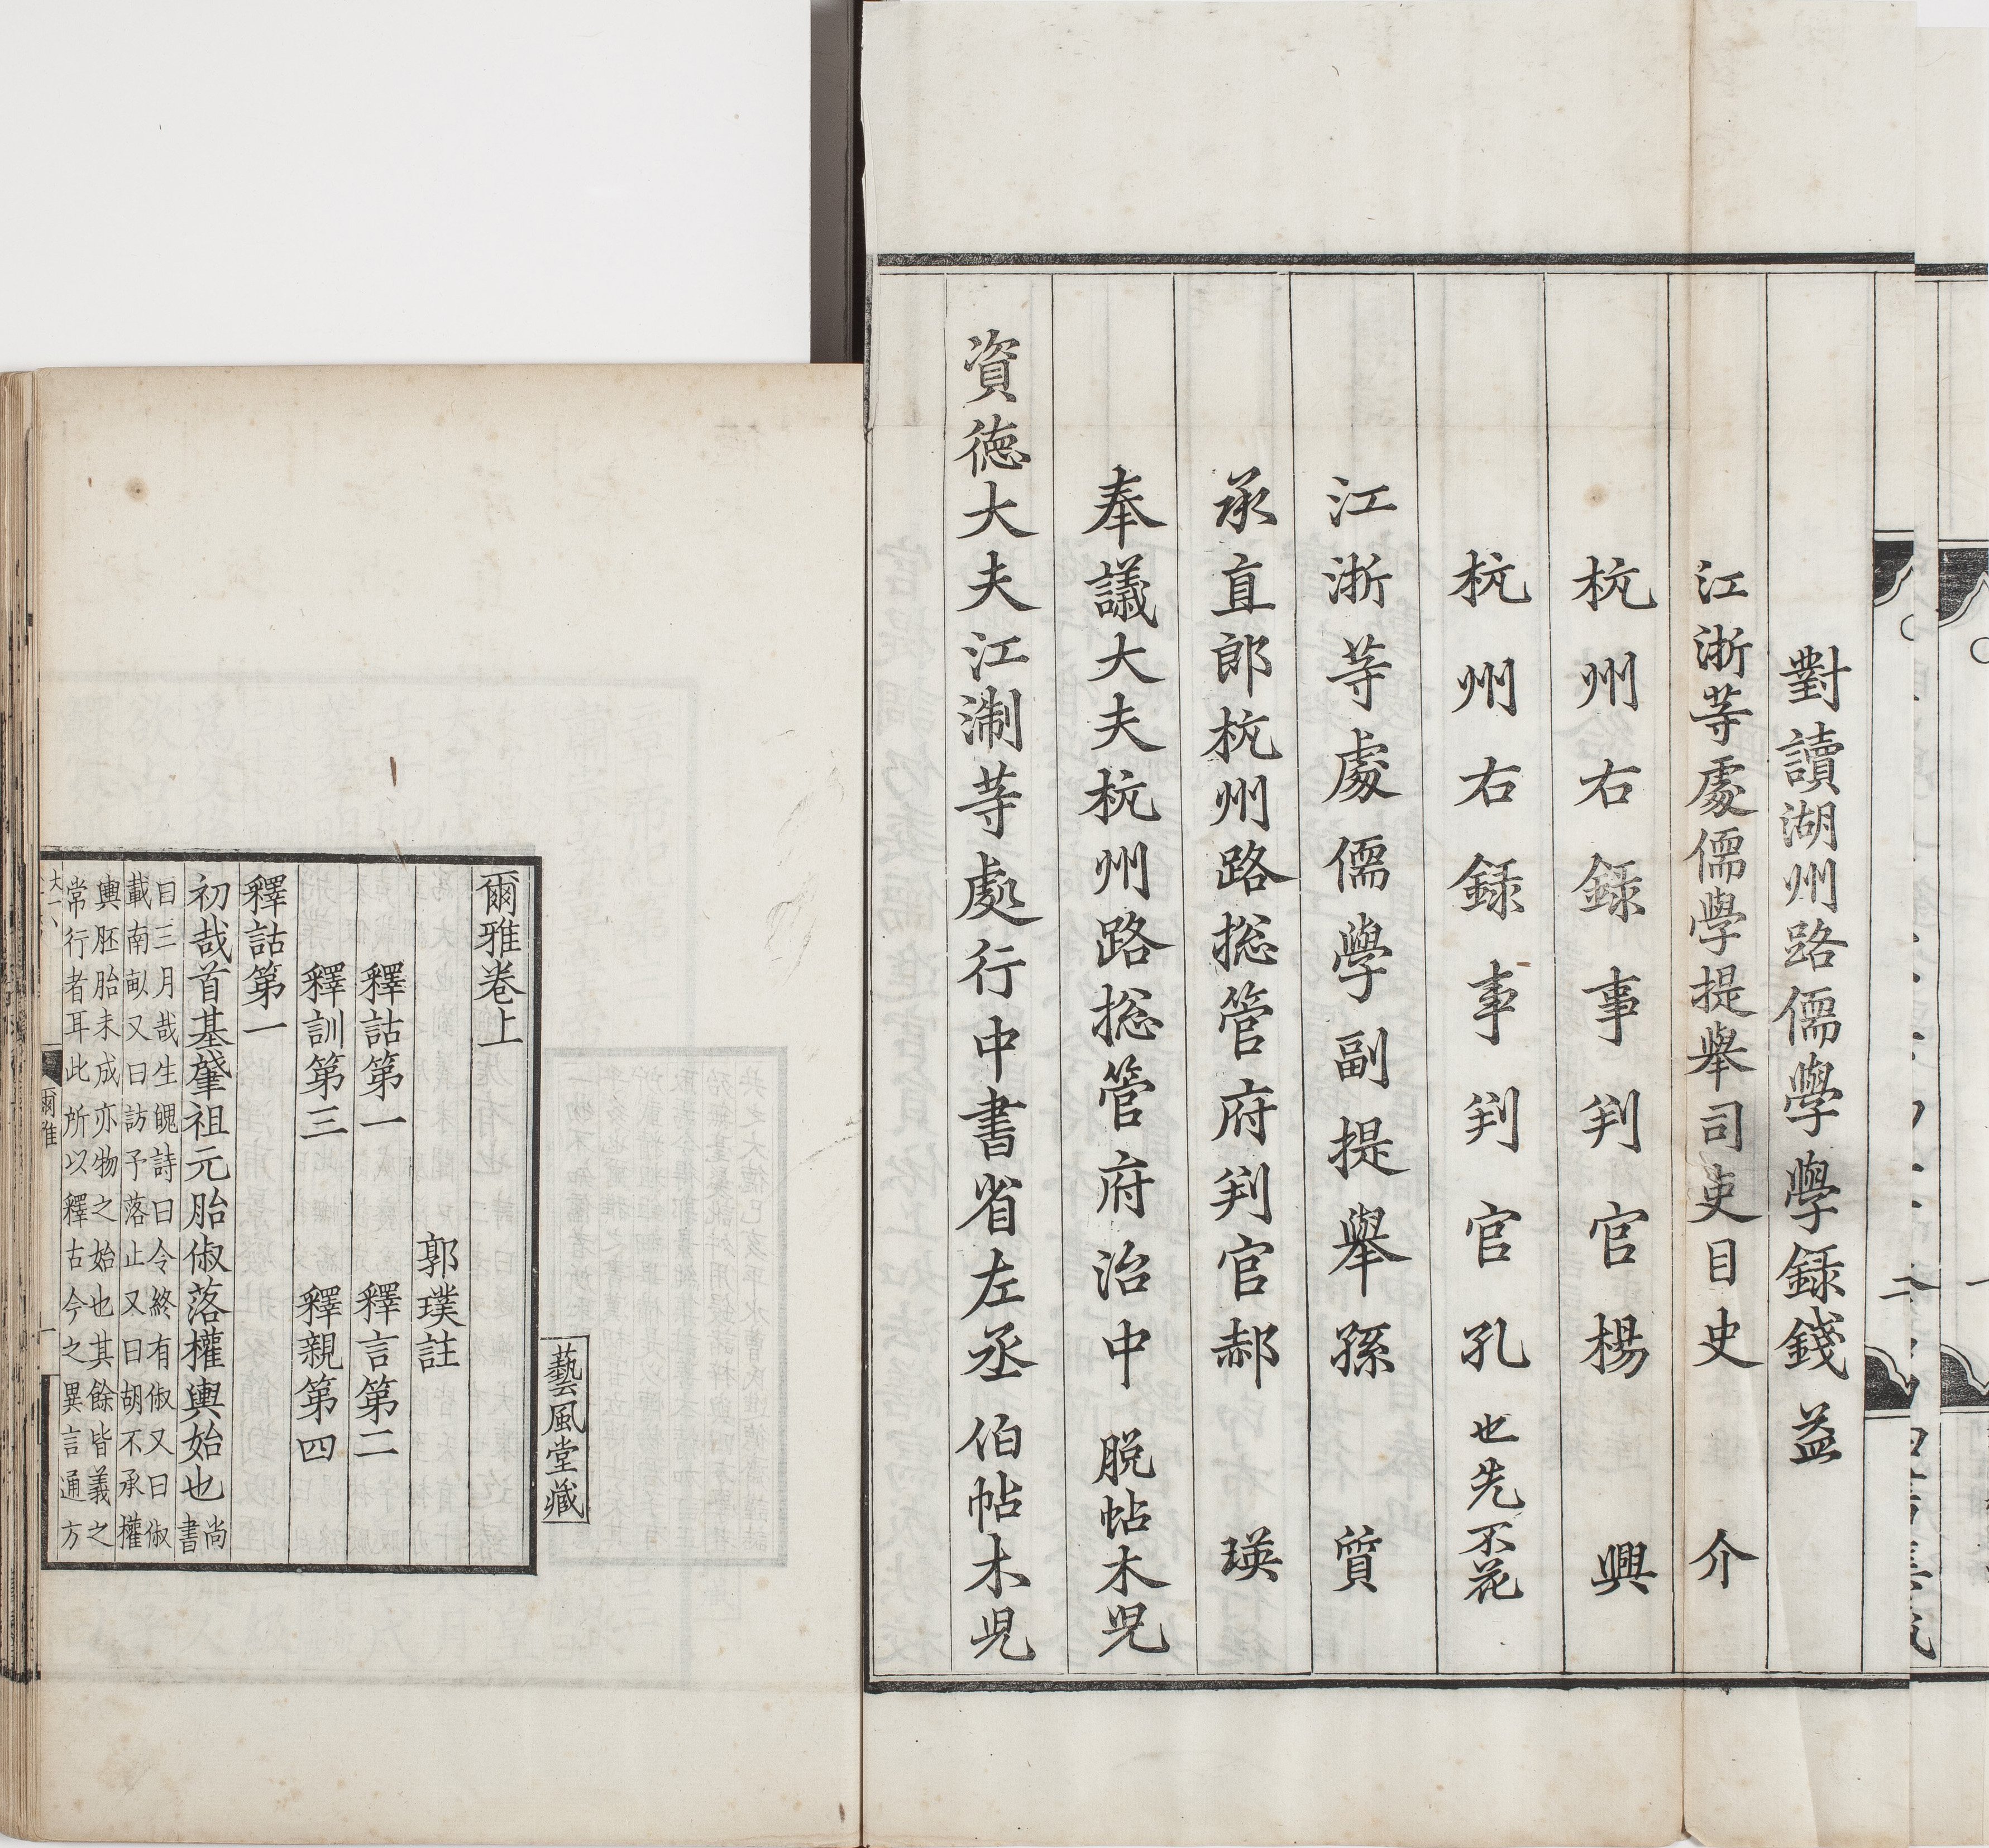 對讀湖州路儒學學録錢益
江浙等處儒學提舉司吏目史介
杭州右録事判官楊興
杭州右録事判官孔也先不花
江浙等處儒學副提舉孫質
承直郎杭州路揔管府判官郝瑛
奉議大夫杭州路揔管府治中脱帖木児
資德大夫江淛等處行中書省左丞伯帖木児
二
藝風堂藏
爾雅卷上
郭璞註
釋詁第一 釋言第二
釋訓第三 釋親第四
釋詁第一
初哉首基肇祖元胎俶落權輿始也尚書
曰三月哉生魄詩曰令終有俶又曰俶
載南畒又曰訪予落止又曰胡不承權
輿胚胎未成亦物之始也其餘皆義之
常行者耳此所以釋古今之異言通方
爾雅
一